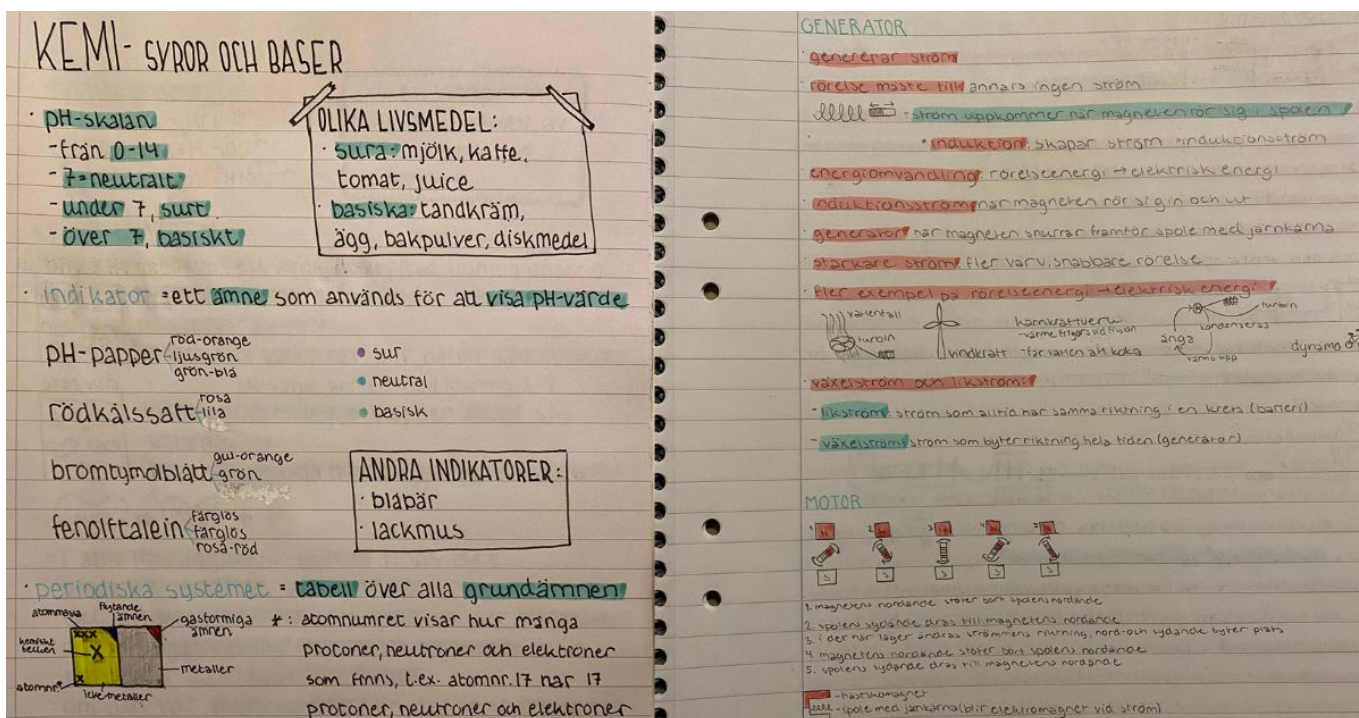 KEMI - SYROR OCH BASER
· pH-skalan
-från 0-14
-7=neutralt
-under 7, surt
-över 7, basiskt
OLIKA LIVSMEDEL:
· sura: mjölk, kaffe,
tomat, juice
· basiska: tandkräm,
ägg, bakpulver, diskmedel
· indikator =ett ämne som används för att visa pH-värde
pH-papper
röd-orange
ljusgrön
grön-blå
· sur
· neutral
· basisk
rödkålssaft
rosa
lila
bromtymolblått
gul-orange
grön
fenolftalein
färglös
färglös
rosa-röd
ANDRA INDIKATORER:
· blåbär
· lackmus
· periodiska systemet = tabell över alla grundämnen
atommassa
flytande
ämnen
gasformiga
ämnen
kemiskt
tecken
XXX
X
X
metaller
atomnr*
icke-metaller
* : atomnumret visar hur många
protoner, neutroner och elektroner
som finns, t.ex. atomnr. 17 har 17
protoner, neutroner och elektroner
GENERATOR
· genererar ström
· rörelse måste till annars ingen ström
- ström uppkommer när magneten rör sig i spolen
· induktion: skapar ström =induktionsström
· energiomvandling: rörelseenergi → elektrisk energi
· induktionsström: när magneten rör sig in och ut
· generator: när magneten snurrar framför spole med järnkärna
· starkare ström: fler varv, snabbare rörelse
· fler exempel på rörelseenergi → elektrisk energi
vattenfall
turbin
vindkraft
kärnkraftverk
-värme frigörs vid fission
-får vatten att koka
ånga
värms upp
kondenseras
turbin
dynamo
· växelström och likström:
-likström: ström som alltid har samma riktning i en krets (batteri)
-växelström: ström som byter riktning hela tiden (generator)
MOTOR
1 N
2 N
3 N
4 N
5 N
S
S
S
S
S
1. magnetens nordände stöter bort spolens nordände
2. spolens sydände dras till magnetens nordände
3. i det här läget ändras strömmens riktning, nord-och sydände byter plats
4. magnetens nordände stöter bort spolens nordände
5. spolens sydände dras till magnetens nordände
-hästskomagnet
-spole med järnkärna (blir elektromagnet vid ström)